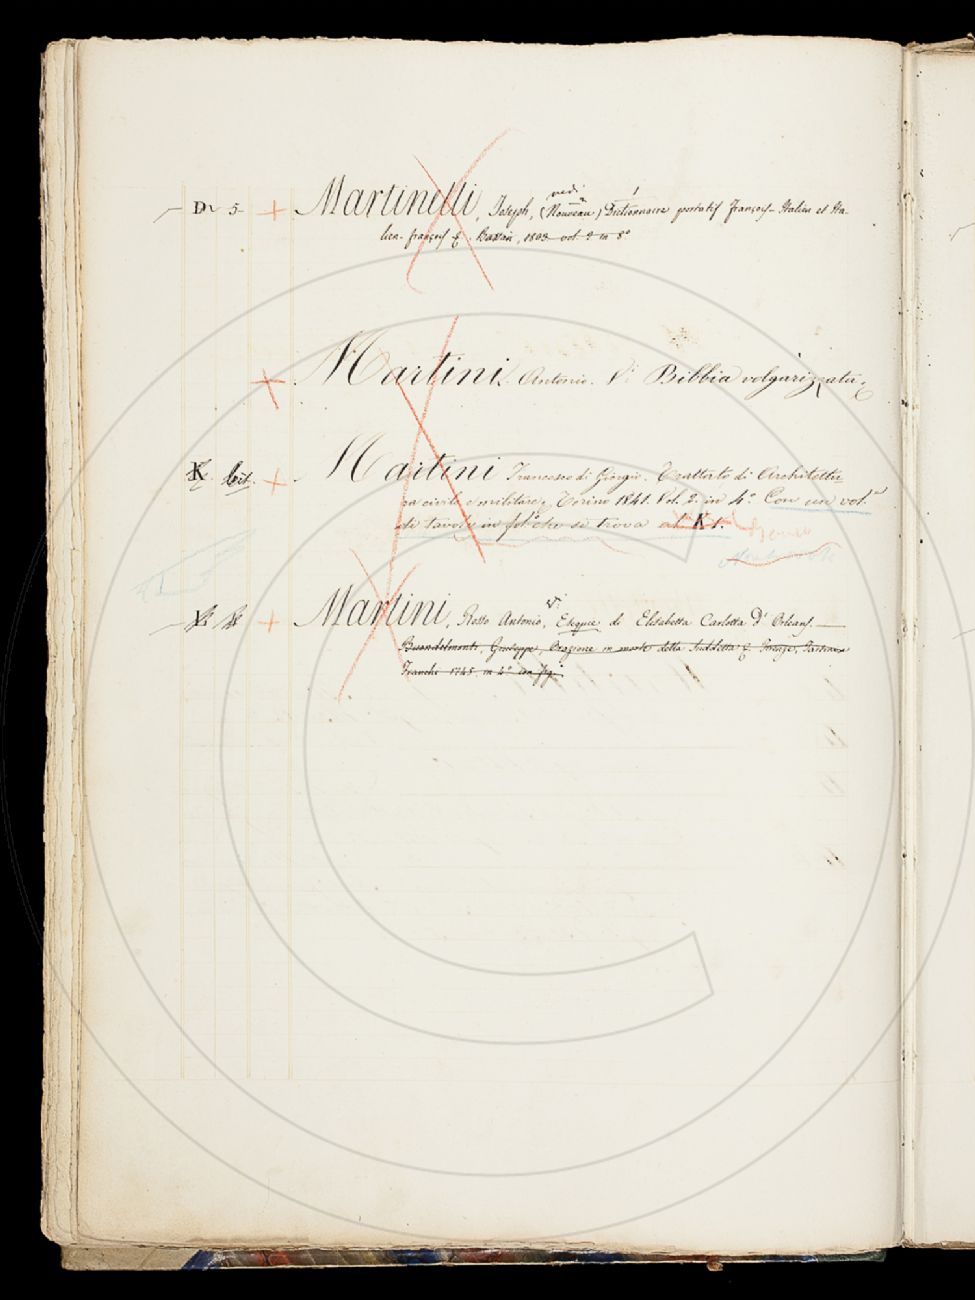 D. 5. + Martinelli, Joseph, (Nouveau) Dictionnaire portatif François-Italien et Ita-
vedi
lien-françois &. Bassan, 1803 vol. 2 in 8°
+ Martini. Antonio. V. Bibbia volgarizzata.
K bit. + Martini Francesco di Giorgio. Trattato di Architettu
ra civile e militare, Torino 1841. Vol. 2. in 4° Con un vol.
di tavole in fol° che si trova al K 1.
+ Martini, Rosso Antonio, V. Esequie di Elisabetta Carlotta d'Orleans.
Buondelmonti, Giuseppe, Orazione in morte della Suddetta &. Firenze, Tartini e
Franchi 1745. in 4° con fig.